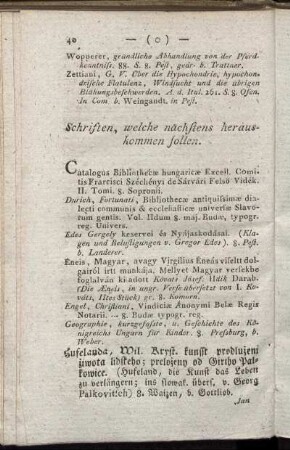 40 — ( o ) —
Wopperer, gründliche Abhandlung von der Pferd-
kenntniss. 88. S. 8. Pest, gedr. b. Trattner.
Zettiani, G. V. Über die Hypochondrie, hypochon-
drische Flatulenz, Windsucht und die übrigen
Blähungsbeschwerden. a. d. Ital. 261. S. 8. Ofen.
In Com. b. Weingandt. in Pest.
Schriften, welche nächstens heraus-
kommen sollen.
Catalogus Bibliothecæ hungaricæ Excell. Comi-
tis Francisci Széchényi de Sárvári Felső Vidék.
II. Tomi. 8. Sopronii.
Durich, Fortunati, Bibliothecæ antiquissimæ dia-
lecti communis & ecclesiasticæ universæ Slavo-
rum gentis. Vol. IIdum 8. maj. Budæ, typogr.
reg. Univers.
Édes Gergely keservei és Nyájaskodásai. (Kla-
gen und Belustigungen v. Gregor Edes). 8. Pest.
b. Landerer.
Eneis, Magyar, avagy Virgilius Éneás viselt dol-
gairól irtt munkája. Mellyet Magyar verſekbe
foglalván ki adott Kováts Jósef. IIdik Darab.
(Die Æneis, in ungr. Verse übersetzt von I. Ko-
váts, IItes Stück) gr. 8. Komorn.
Engel, Christiani, Vindiciæ Anonymi Belæ Regis
Notarii. — 8. Budæ typogr. reg.
Geographie, kurzgefasste, u. Geschichte des Kö-
nigreichs Ungarn für Kinder. 8. Pressburg, b.
Weber.
Hufelanda, Wil. Kryst. kunsst prodluženj
žiwota lidského; preložený od Giřjho Pal-
kowice. (Hufeland, die Kunst das Leben
zu verlängern; ins slowak. übers. v. Georg
Palkovitsch) 8. Waizen, b. Gottlieb.
Jan